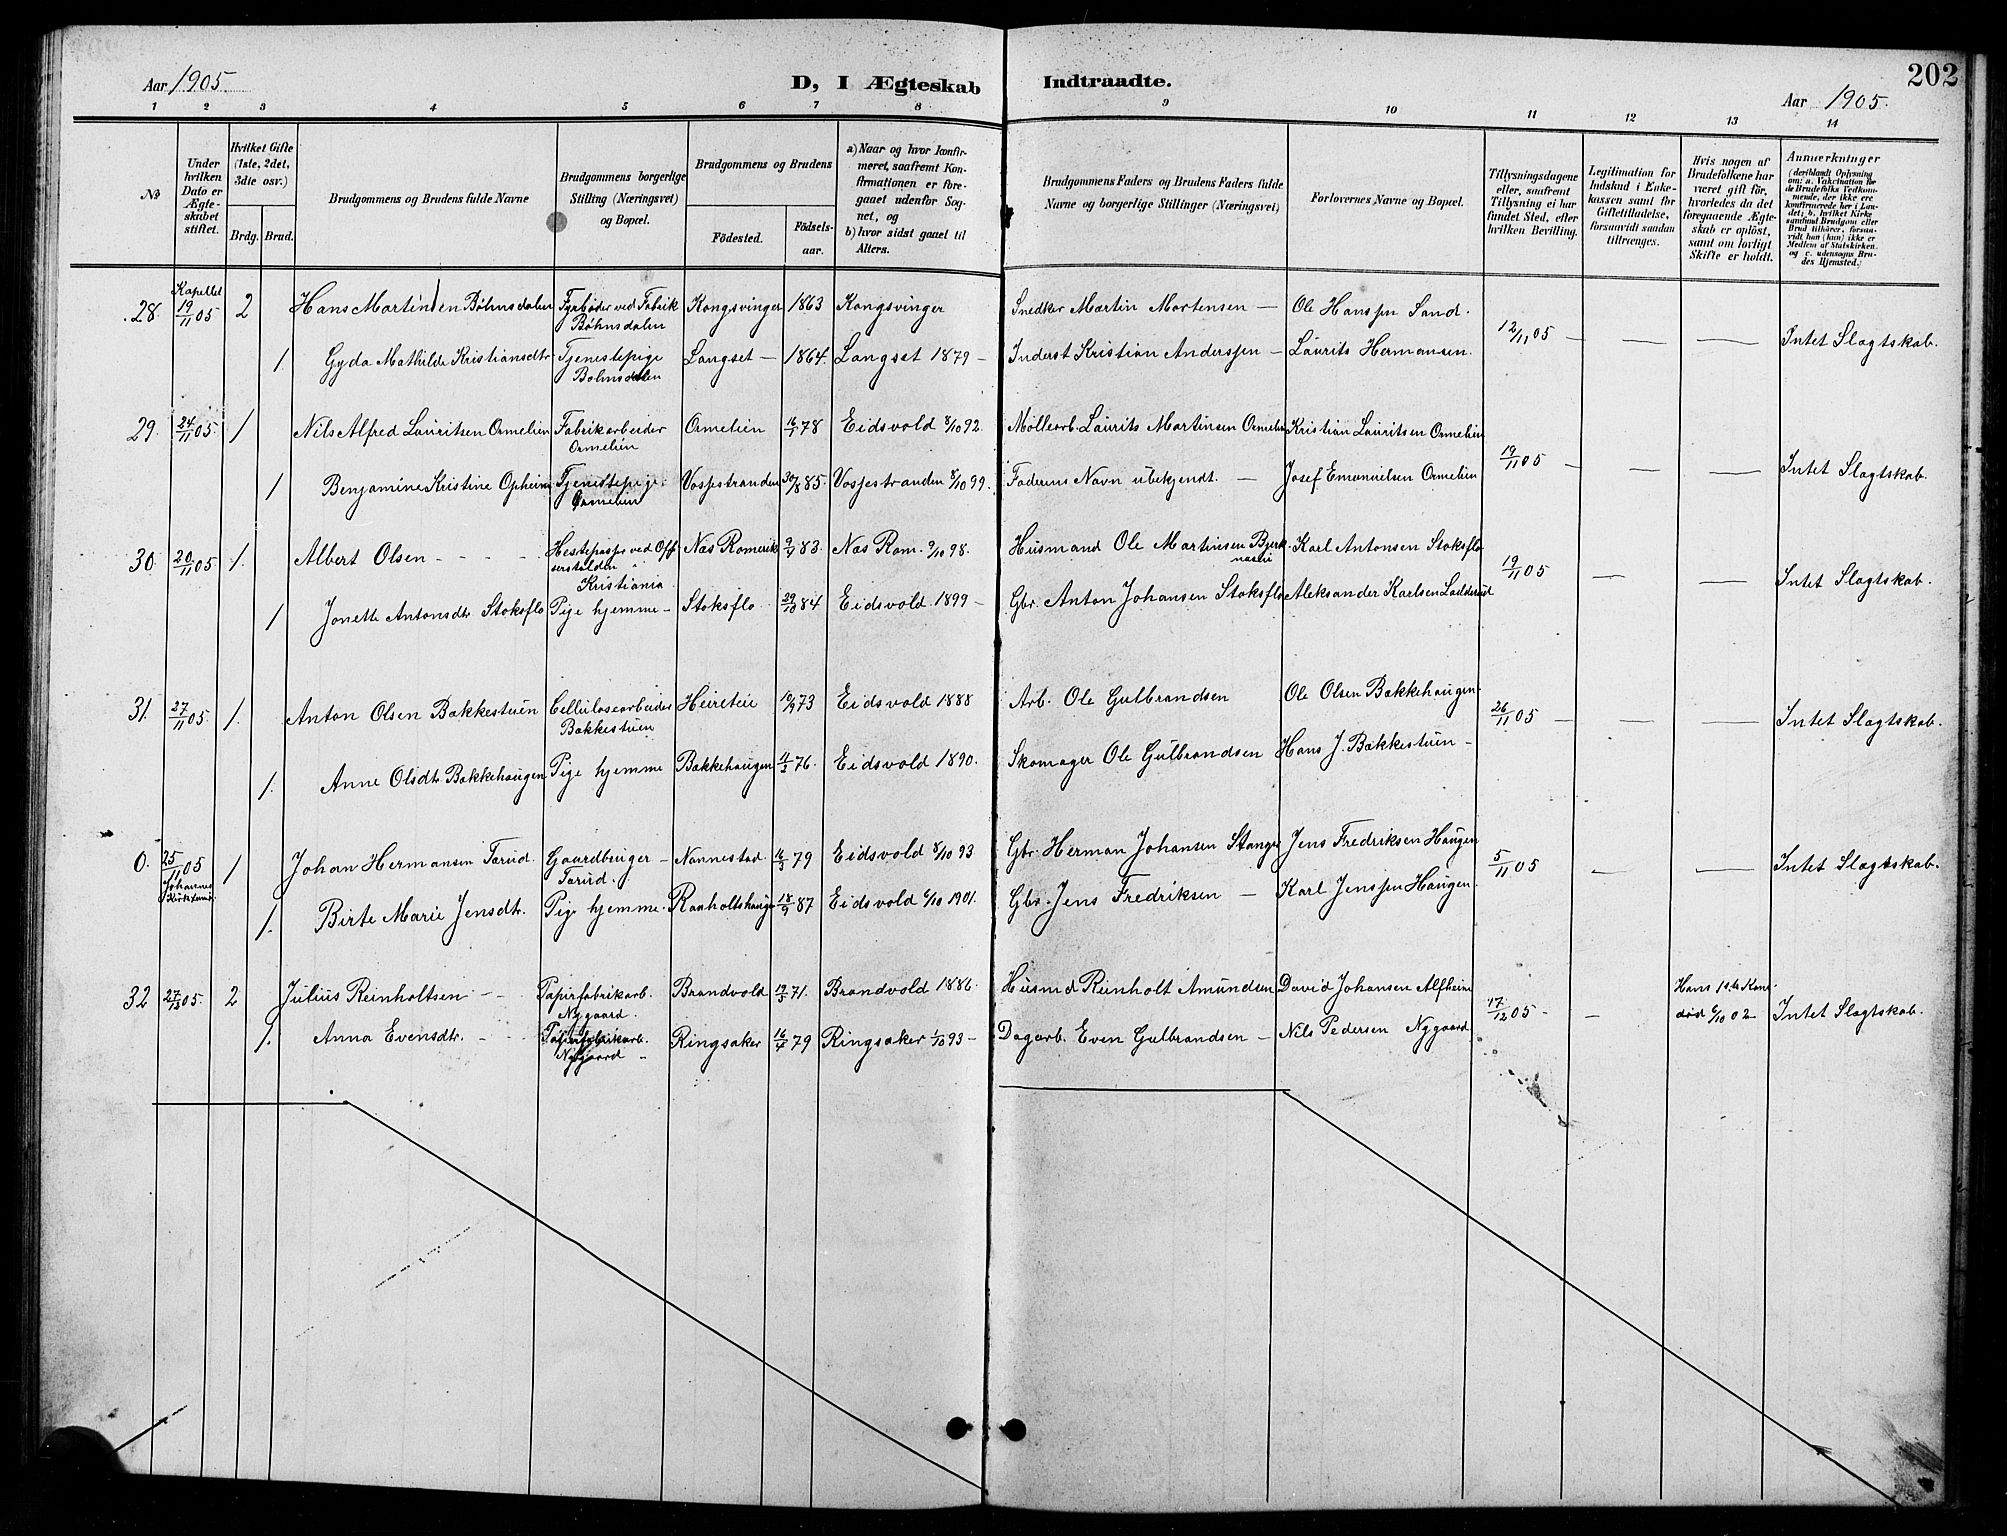 202
Aar 1905.
D, I Ægteskab Indtraadte.
Aar 1905.
1 2 3 4 5 6 7 8 9 10 11 12 13 14
№
Under hvilken Dato er Ægteskabet stiftet.
Hvilket Gifte (1ste, 2det, 3die osv.)
Brdg. Brud.
Brudgommens og Brudens fulde Navne
Brudgommens borgerlige Stilling (Næringsvei) og Bopæl.
Brudgommens og Brudens
Födested.
Födselsaar.
a) Naar og hvor konfirmeret, saafremt Konfirmationen er foregaaet udenfor Sognet, og
b) hvor sidst gaaet til Alters.
Brudgommens Faders og Brudens Faders fulde Navne og borgerlige Stillinger (Næringsvei)
Forlovernes Navne og Bopæl.
Tillysningsdagene eller, saafremt Tillysning ei har fundet Sted, efter hvilken Bevilling.
Legitimation for Indskud i Enkekassen samt for Giftetilladelse, forsaavidt saadan tiltrænges.
Hvis nogen af Brudefolkene har været gift för, hvorledes da det foregaaende Ægteskab er oplöst, samt om lovligt Skifte er holdt.
Anmerkninger (deriblandt Oplysning om: a. Vakcination for de Brudefolks Vedkommende, der ikke ere konfirmerede her i Landet; b. hvilket Kirkesamfund Brudgom eller Brud tilhører, forsaavidt han (hun) ikke er Medlem af Statskirken. og c. udensogns Brudes Hjemsted.)
28. Kapellet 19/11 05 2 Hans Martinsen Bøhnsdalen Fyrbøder ved Fabrik Bøhnsdalen Kongsvinger 1863 Kongsvinger Snedker Martin Mortensen — Ole Hanssen Sand. 12/11 05 — — — Intet Slagtskab.
1. Gyda Mathilde Kristiansdtr. Tjenestepige Bøhnsdalen Langset — 1864. Langset 1879 — Inderst Kristian Anderssen — Laurits Hermansen.
29. 24/11 05. 1 Nils Alfred Lauritsen Ormelien Fabrikarbeider Ormelien Ormelien 16/1 78 Eidsvold 8/10 92. Møllearb. Laurits Martinsen Ormelien Kristian Lauritsen Ormelien 19/11 05 — — — Intet Slagtskab.
1 Benjamine Kristine Opheim Tjenestepige Ormelien Vossestranden 30/8 85. Vossestranden 8/10 99. Faderens Navn ubekjendt. — Josef Emanuelsen Ormelien
30. 20/11 05 1. Albert Olsen — Hestepasser ved Offserstalden Kristiania Næs Romerik 9/4 83. Næs Rom. 9/10 98. Husmand Ole Martinsen Karl Antonsen Stoksflo 19/11 05 — — Intet Slagtskab.
1 Jonette Antonsdtr. Stoksflo Pige hjemme — Stoksflo 29/10 84 Eidsvold 1899 — Gbr. Anton Johansen Stoksflo Aleksander Karlsen Ladderud
31. 27/11 05 1. Anton Olsen Bakkestuen Cellulosearbeider Bakkestuen Heireteie 10/9 73 Eidsvold 1888 Arb. Ole Gulbrandsen Ole Olsen Bakkehaugen 26/11 05 — — — Intet Slagtskab.
1. Anne Olsdtr. Bakkehaugen Pige hjemme Bakkehaugen 11/3 76. Eidsvold 1890. Skomager Ole Gulbrandsen Hans J. Bakkestuen —
0. 25/11 05 Johannes Kirk 1 Johan Hermansen Tarud. Gaardbruger — Tarud. Nannestad 16/3 79 Eidsvold 8/10 93 Gbr. Herman Johansen Stange Jens Fredriksen Haugen 5/11 05 — — Intet Slagtskab.
1. Birte Marie Jensdtr. Pige hjemme. Ranholtshaugen 18/9 87 Eidsvold 6/10 1901. Gbr. Jens Fredriksen — Karl Jenssen Haugen.
32 27/12 05. 2 Julius Reinholtsen — Papirfabrikarb. Nygaard. Brandvold 19/5 71. Brandvold 1886. Husmd Reinholt Amundsen David Johansen Alfheim 17/12 05 — — Hans 1ste Kone død 6/10 02 Intet Slagtskab.
1. Anna Evensdtr. — Papirfabrikarb. Nygaard Ringsaker 16/4 79 Ringsaker 1/10 93 — Dagarb. Even Gulbrandsen — Nils Pedersen Nygaard